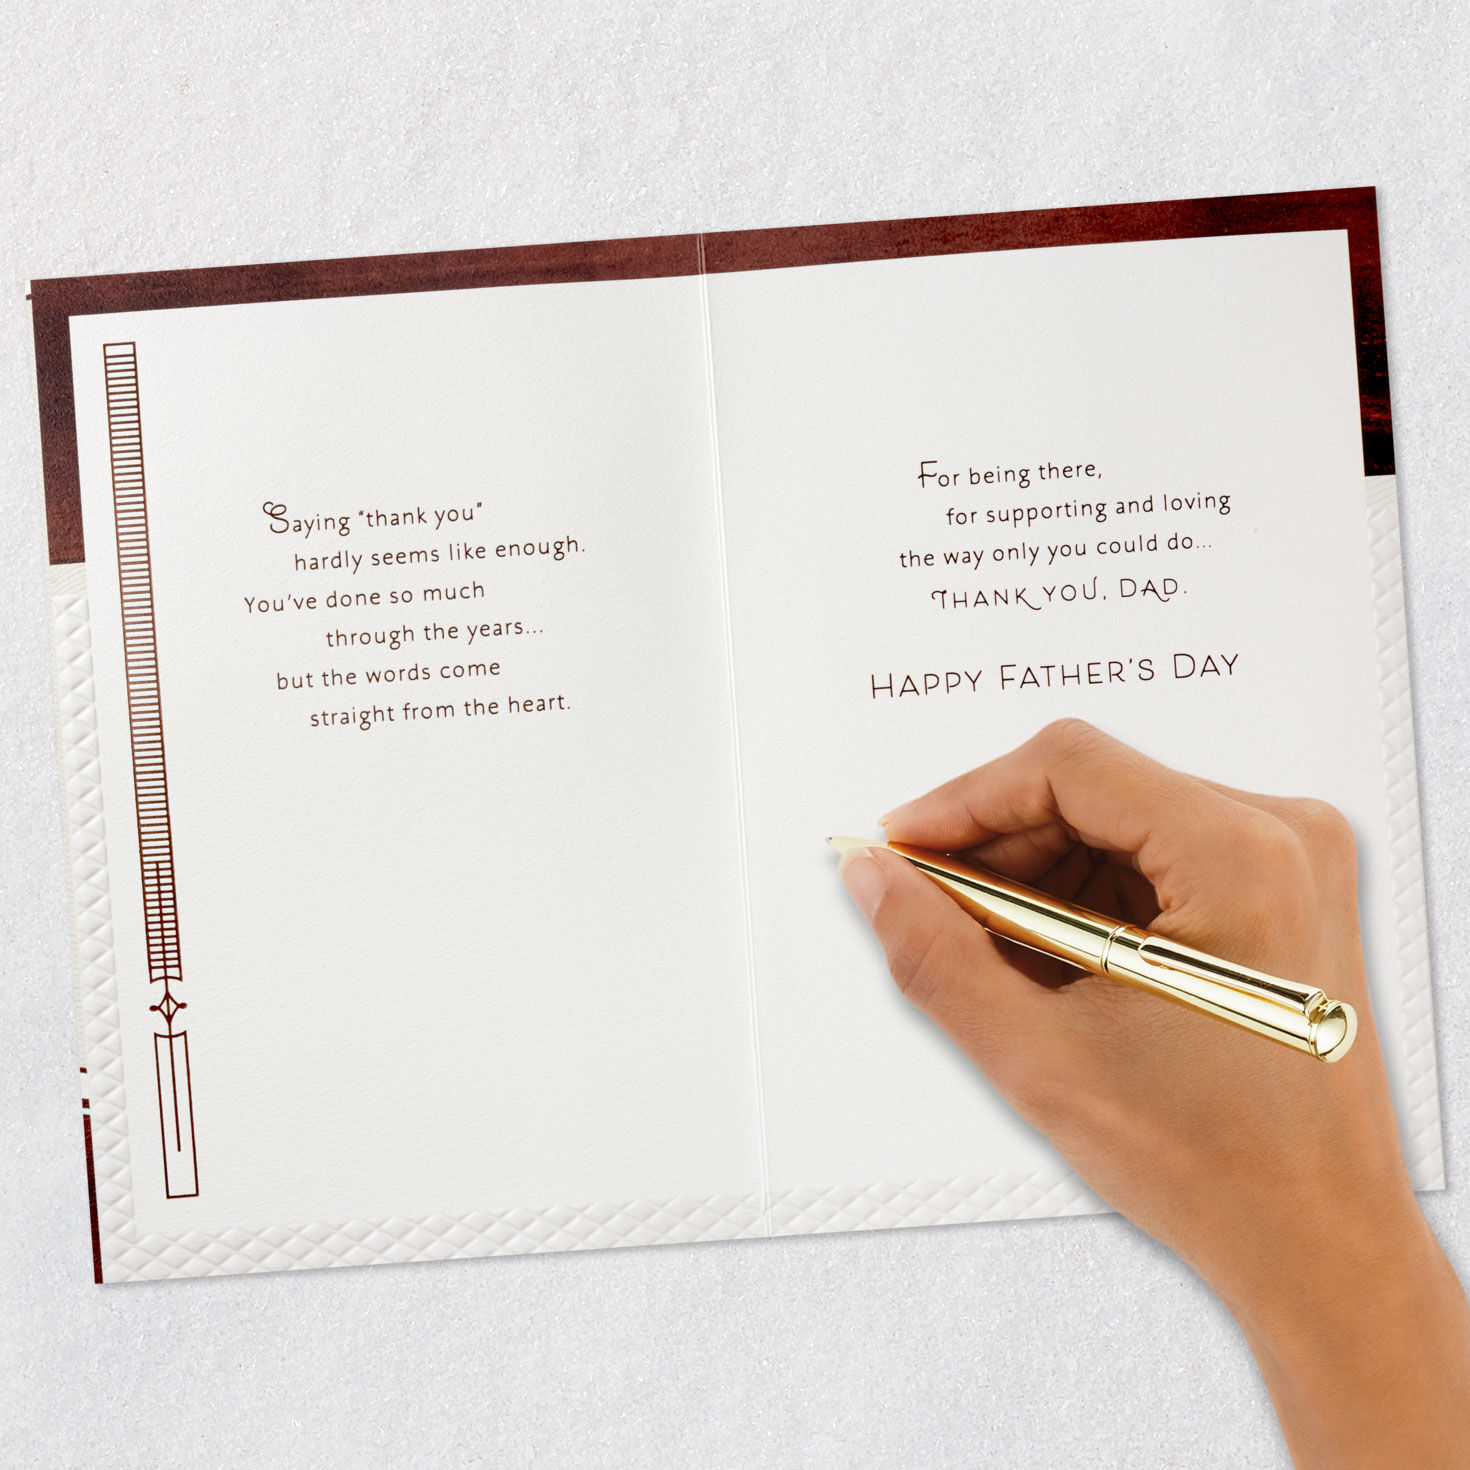 Saying "thank you"
hardly seems like enough.
You've done so much
through the years...
but the words come
straight from the heart.
For being there,
for supporting and loving
the way only you could do...
THANK YOU, DAD.
HAPPY FATHER'S DAY